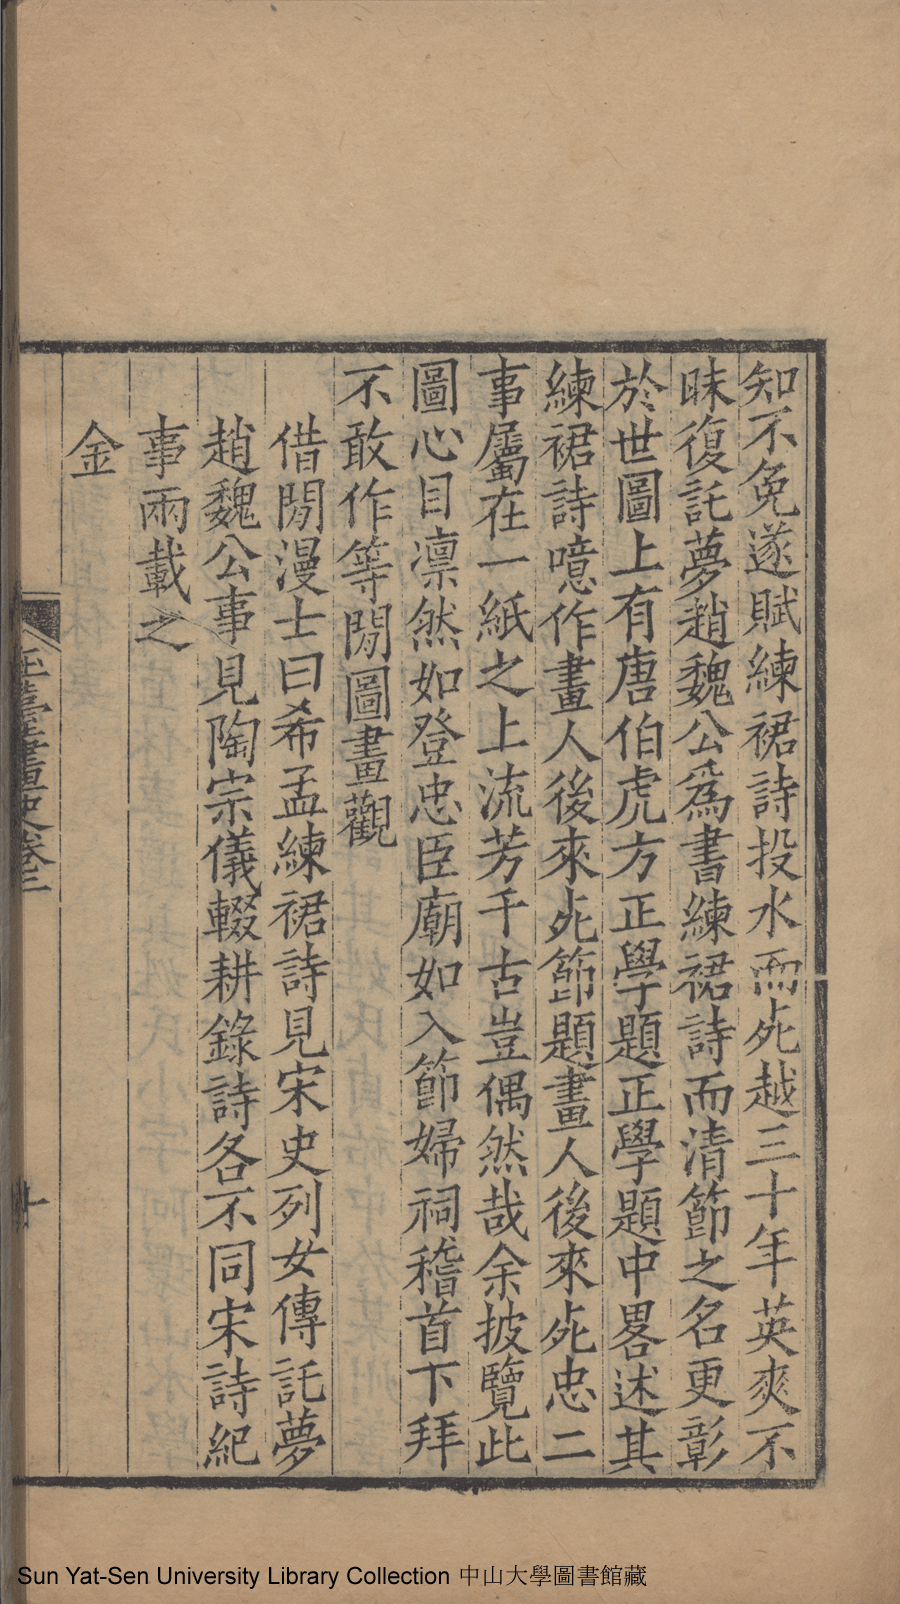 知不免遂賦練裙詩投水而死越三十年英爽不
昧復託夢趙魏公爲書練裙詩而清節之名更彰
於世圖上有唐伯虎方正學題正學題中畧述其
練裙詩噫作畫人後來死節題畫人後來死忠二
事屬在一紙之上流芳千古豈偶然哉余披覽此
圖心目凛然如登忠臣廟如入節婦祠稽首下拜
不敢作等閒圖畫觀
借閒漫士曰希孟練裙詩見宋史列女傳託夢
趙魏公事見陶宗儀輟耕錄詩各不同宋詩紀
事兩載之
金
玉臺畫史卷三
十
Sun Yat-Sen University Library Collection 中山大學圖書館藏